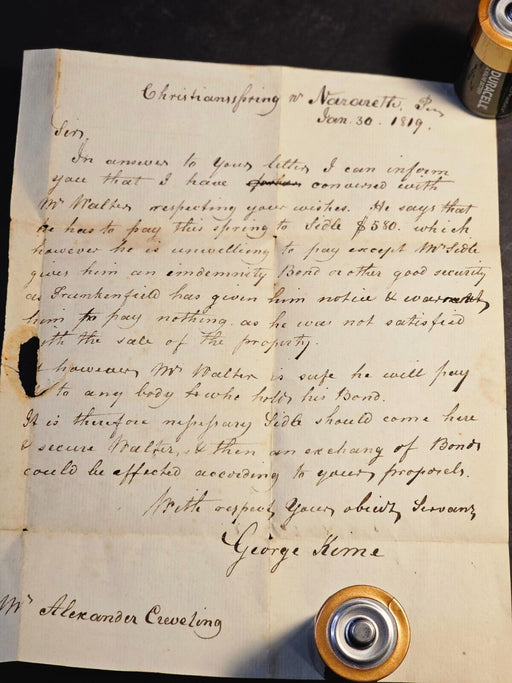 Christiansspring nr Nazareth. Pa.
Jan. 30. 1819.
Sir,
In answer to your letter I can inform
you that I have conversed with
Mr Walter respecting your wishes. He says that
he has to pay this spring to Sidle $580. which
however he is unwilling to pay except Mr Sidle
gives him an indemnity Bond or other good security
as Frankenfield has given him notice &
him to pay nothing. as he was not satisfied
ith the sale of the property.
f however Mr Walter is safe he will pay
to any body who holds his Bond.
It is therefore nessesary Sidle should come here
& secure Walter, & then an exchang of Bonds
could be effected according to your proposels.
With respect Your obiedt Servant
George Kime
Mr Alexander Creveling
DURACELL